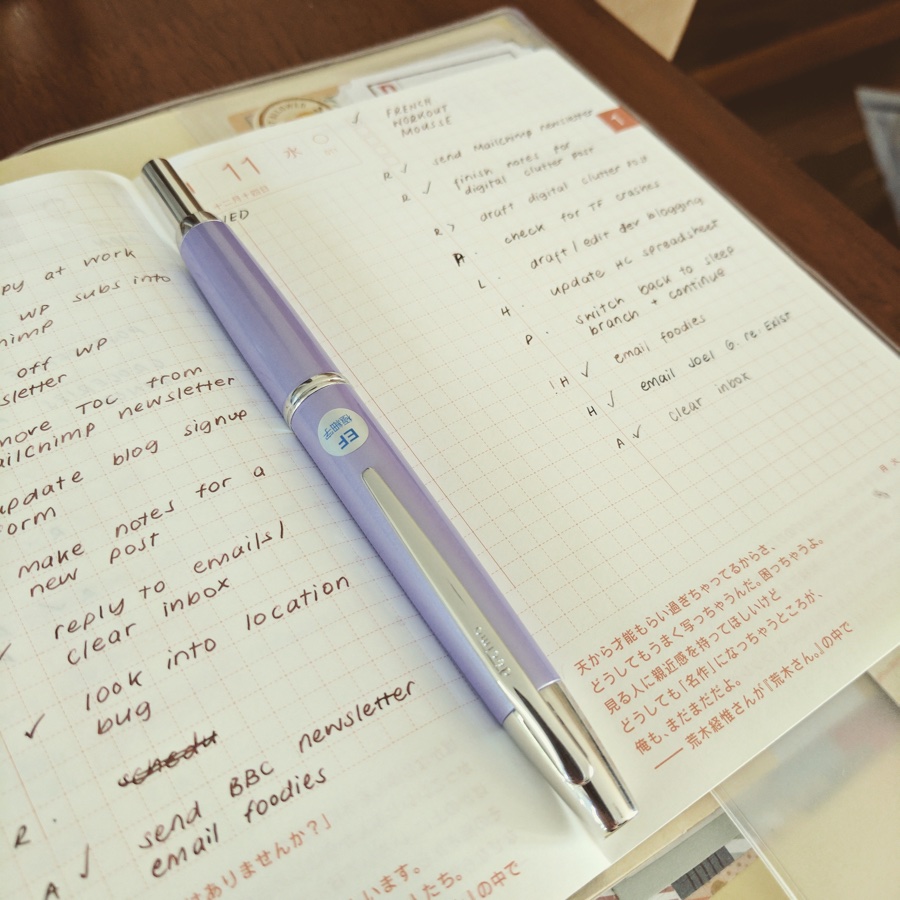 py at work
WP subs into
himp
off WP
sletter
more TOC from
ailchimp newsletter
update blog signup
orm
make notes for a
new post
reply to emails/
clear inbox
✓ look into location
bug
R .
A ✓ send BBC newsletter
email foodies
はありませんか？」
います。
たち。
』の中で
11 水
十二月十四日
WED
✓ FRENCH
WORKOUT
MOUSSE
1
R ✓ send Mailchimp newsletter
R ✓ finish notes for
digital clutter post
R > draft digital clutter post
P . check for TF crashes
L . draft/edit dev blogging
H . update HC spreadsheet
P . switch back to sleep
branch + continue
!H ✓ email foodies
H ✓ email Joel G. re: Exist
A ✓ clear inbox
EF
極細字
天から才能もらい過ぎちゃってるからさ、
どうしてもうまく写っちゃうんだ。困っちゃうよ。
見る人に親近感を持ってほしいけど
どうしても「名作」になっちゃうところが、
俺も、まだまだだよ。
── 荒木経惟さんが『荒木さん。』の中で